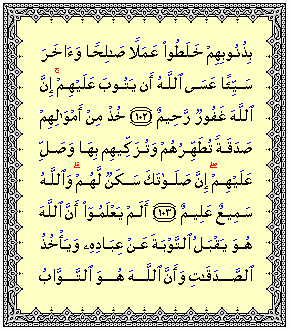 بِذُنُوبِهِمْ خَلَطُوا۟ عَمَلًا صَـٰلِحًا وَءَاخَرَ
سَيِّئًا عَسَى ٱللَّهُ أَن يَتُوبَ عَلَيْهِمْ ۚ إِنَّ
ٱللَّهَ غَفُورٌ رَّحِيمٌ ﴿١٠٢﴾ خُذْ مِنْ أَمْوَٰلِهِمْ
صَدَقَةً تُطَهِّرُهُمْ وَتُزَكِّيهِم بِهَا وَصَلِّ
عَلَيْهِمْ ۖ إِنَّ صَلَوٰتَكَ سَكَنٌ لَّهُمْ ۗ وَٱللَّهُ
سَمِيعٌ عَلِيمٌ ﴿١٠٣﴾ أَلَمْ يَعْلَمُوٓا۟ أَنَّ ٱللَّهَ
هُوَ يَقْبَلُ ٱلتَّوْبَةَ عَنْ عِبَادِهِۦ وَيَأْخُذُ
ٱلصَّدَقَـٰتِ وَأَنَّ ٱللَّهَ هُوَ ٱلتَّوَّابُ